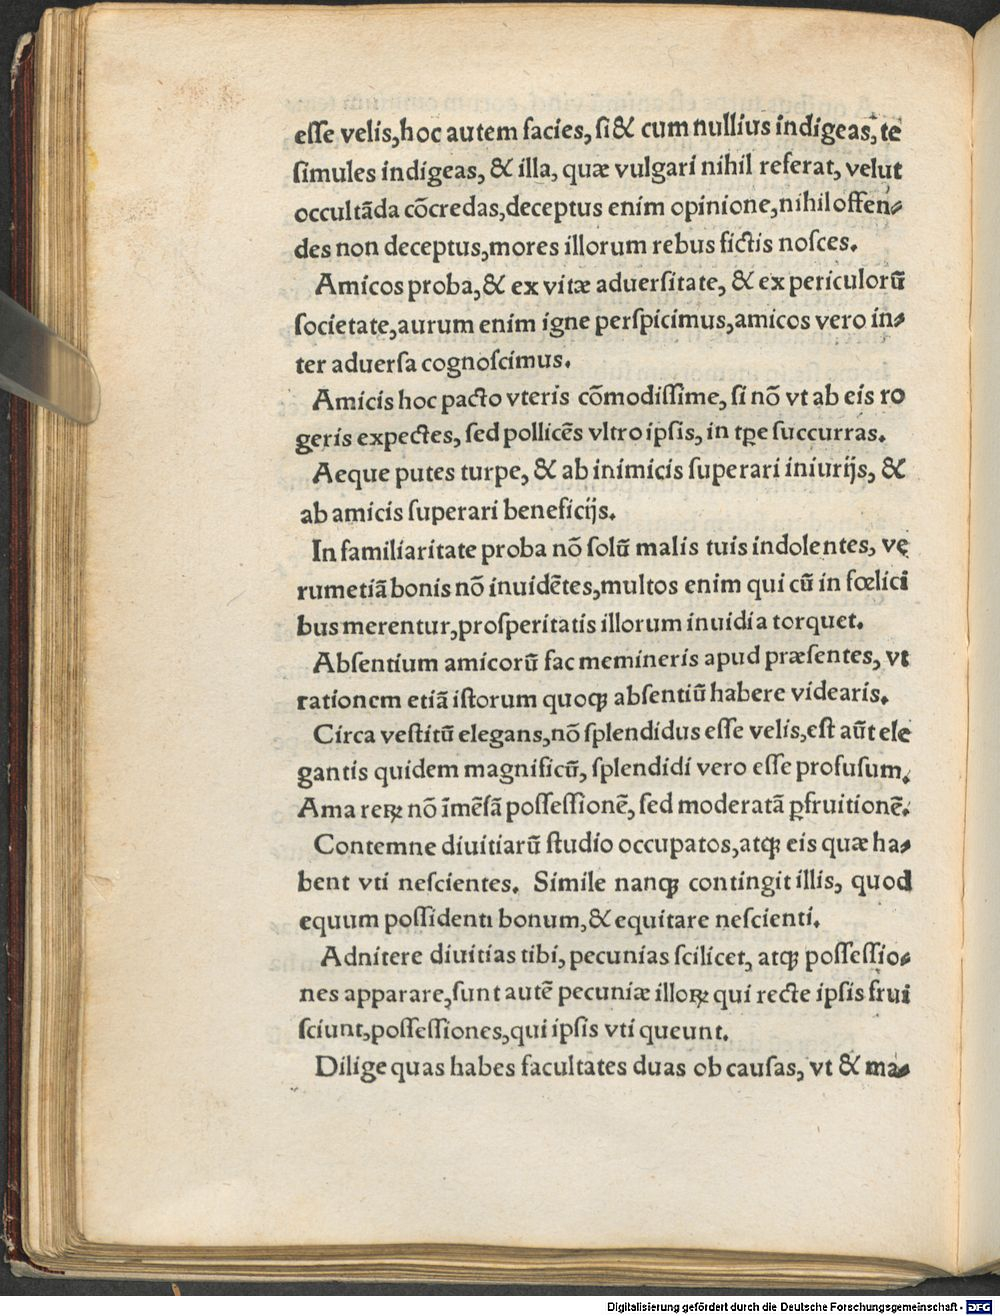 eſſe velis,hoc autem facies, ſi & cum nullius indigeas, te
ſimules indigeas, & illa, quæ vulgari nihil referat, velut
occultãda cõcredas,deceptus enim opinione,nihil offen-
des non deceptus,mores illorum rebus fictis noſces.
Amicos proba,& ex vitæ aduerſitate, & ex periculorũ
ſocietate,aurum enim igne perſpicimus,amicos vero in-
ter aduerſa cognoſcimus.
Amicis hoc pacto vteris cõmodiſſime, ſi nõ vt ab eis ro
geris expectes, ſed pollicẽs vltro ipſis, in tꝑe ſuccurras.
Aeque putes turpe, & ab inimicis ſuperari iniurijs, &
ab amicis ſuperari beneficijs.
In familiaritate proba nõ ſolũ malis tuis indolentes, vę
rumetiã bonis nõ inuidẽtes,multos enim qui cũ in fœlici
bus merentur,proſperitatis illorum inuidia torquet.
Abſentium amicorũ fac memineris apud præſentes, vt
rationem etiã iſtorum quoqꝫ abſentiũ habere videaris.
Circa veſtitũ elegans,nõ ſplendidus eſſe velis,eſt aũt ele
gantis quidem magnificũ, ſplendidi vero eſſe profuſum.
Ama reꝝ nõ ĩmẽſã poſſeſſionẽ, ſed moderatã ꝑfruitionẽ.
Contemne diuitiarũ ſtudio occupatos,atqꝫ eis quæ ha-
bent vti neſcientes. Simile nanqꝫ contingit illis, quod
equum poſſidenti bonum,& equitare neſcienti.
Adnitere diuitias tibi, pecunias ſcilicet, atqꝫ poſſeſſio-
nes apparare,ſunt autẽ pecuniæ illoꝝ qui recte ipſis frui
ſciunt,poſſeſſiones,qui ipſis vti queunt.
Dilige quas habes facultates duas ob cauſas, vt & ma-
Digitalisierung gefördert durch die Deutsche Forschungsgemeinschaft - DFG